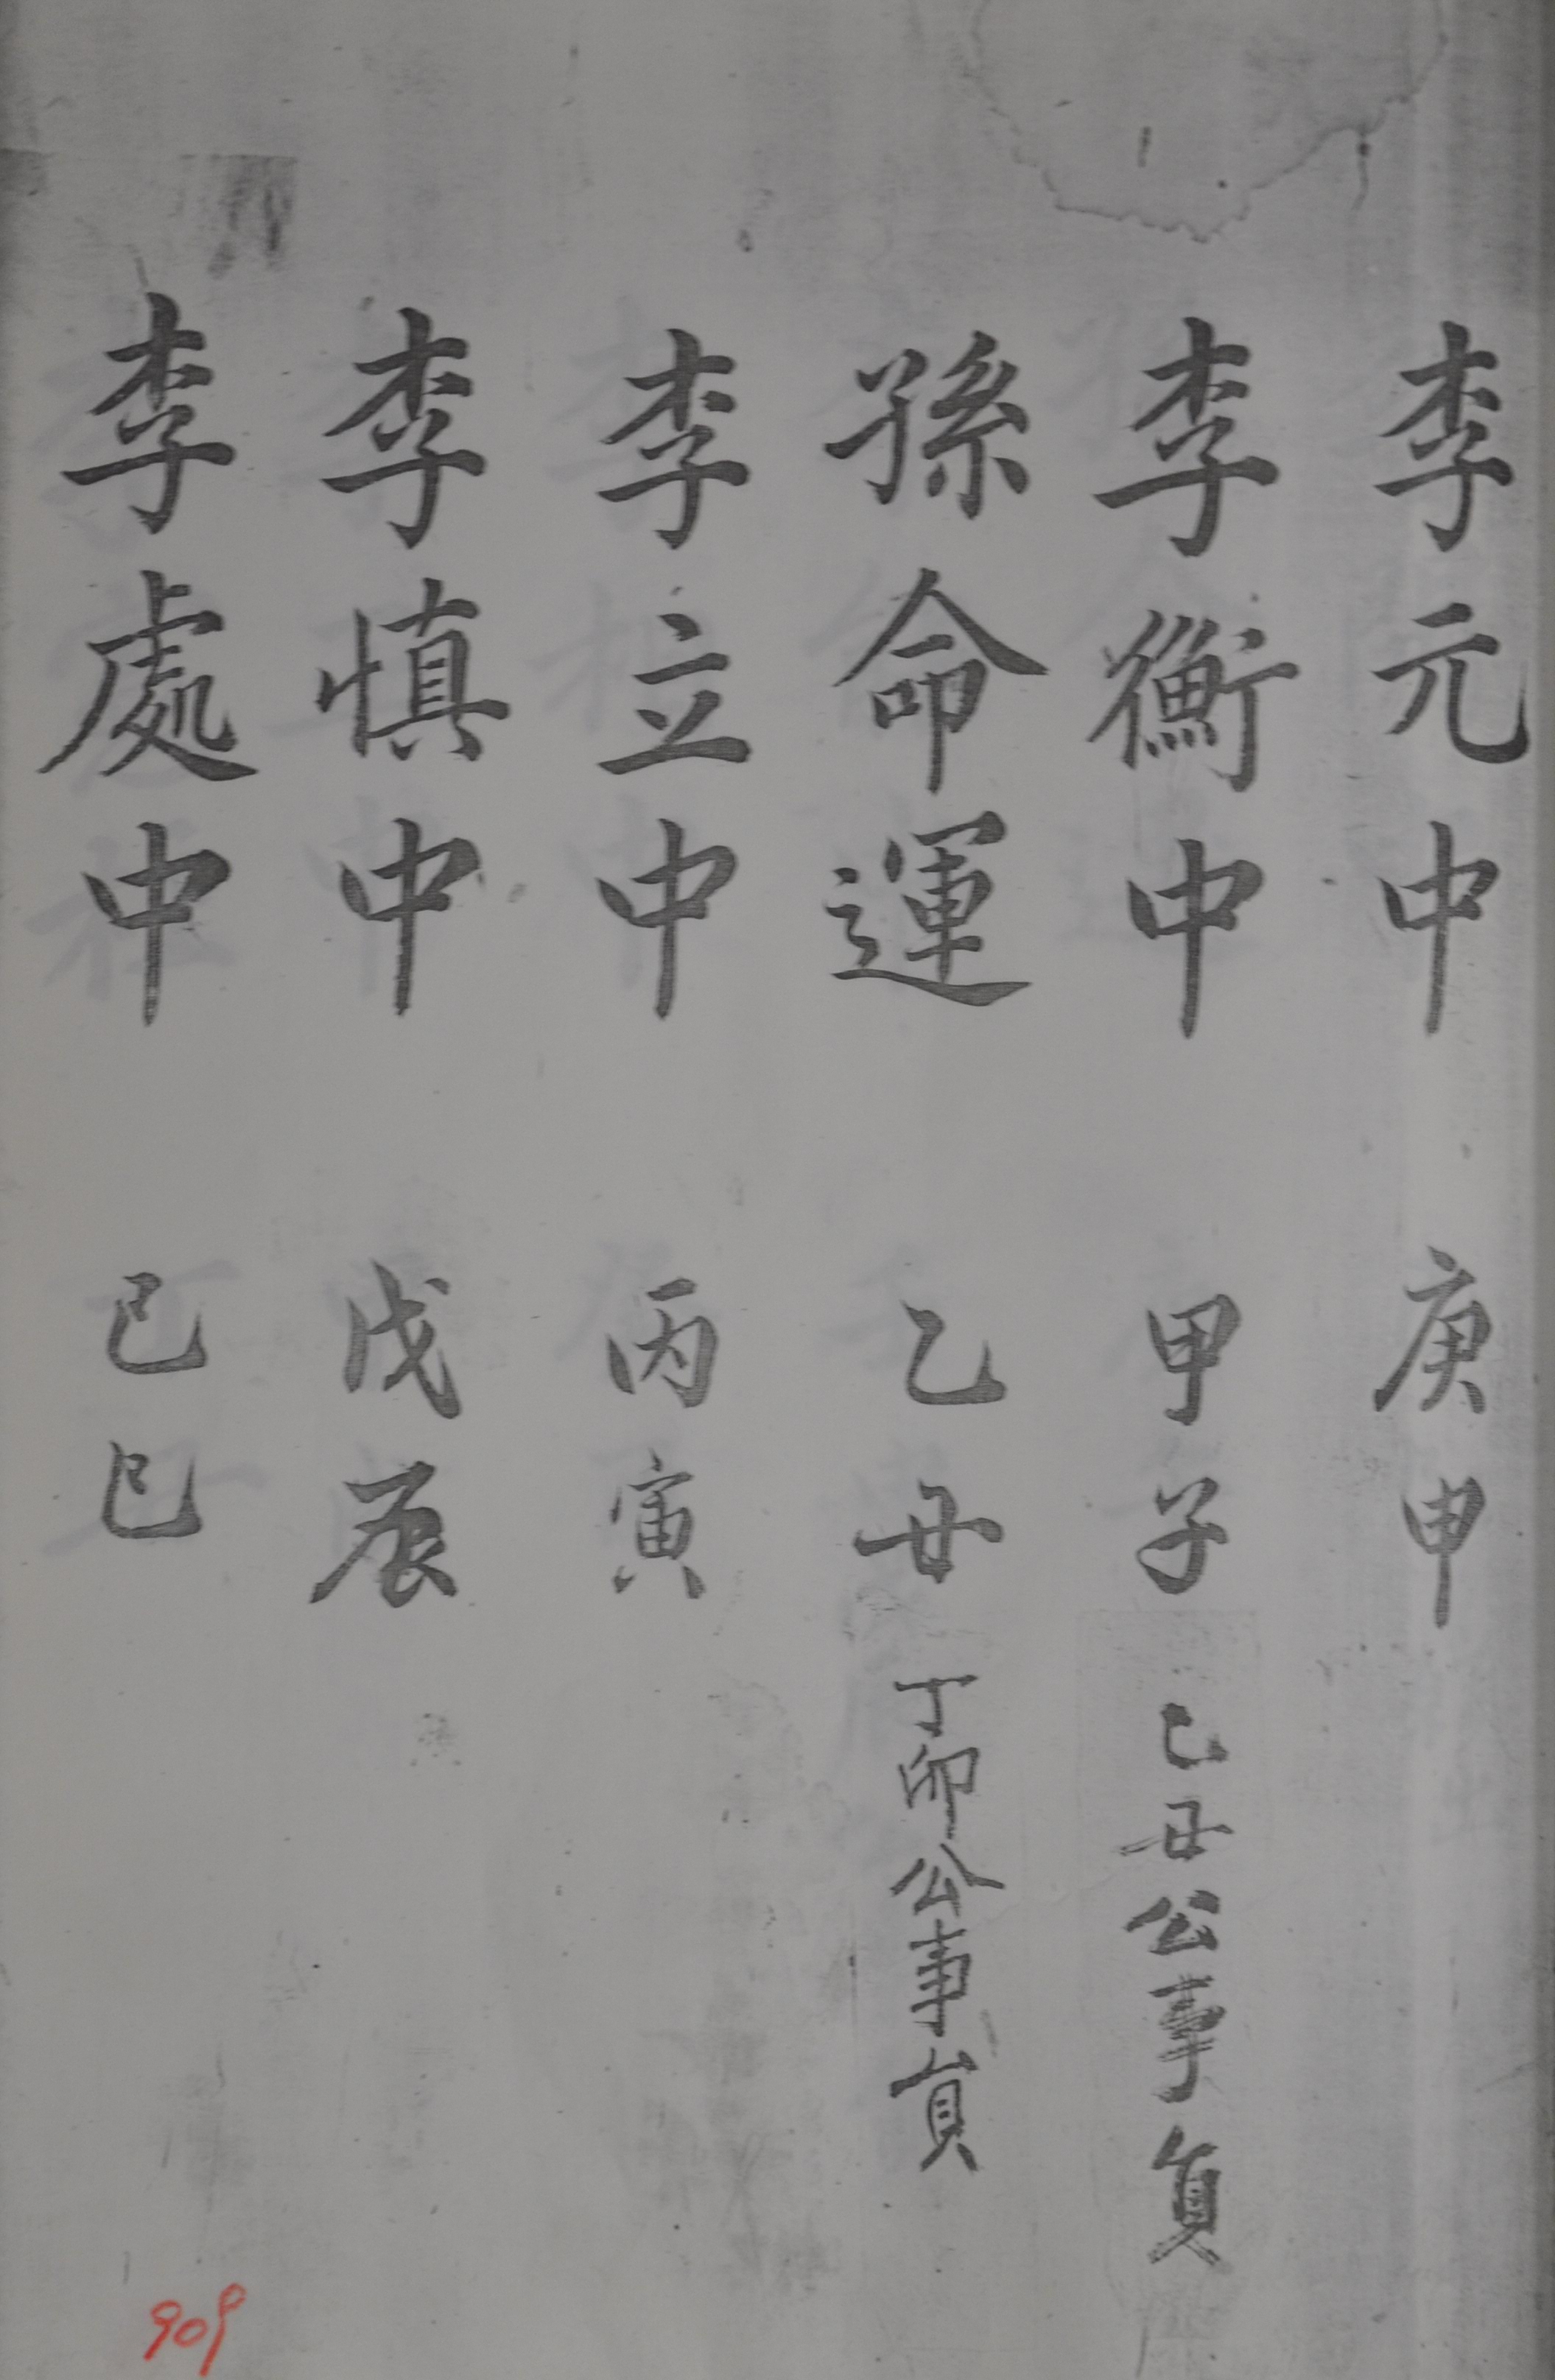 李元中 庚申
李衡中 甲子 己丑公事員
孫命運 乙丑 丁卯公事員
李立中 丙寅
李愼中 戊辰
李處中 己巳
909